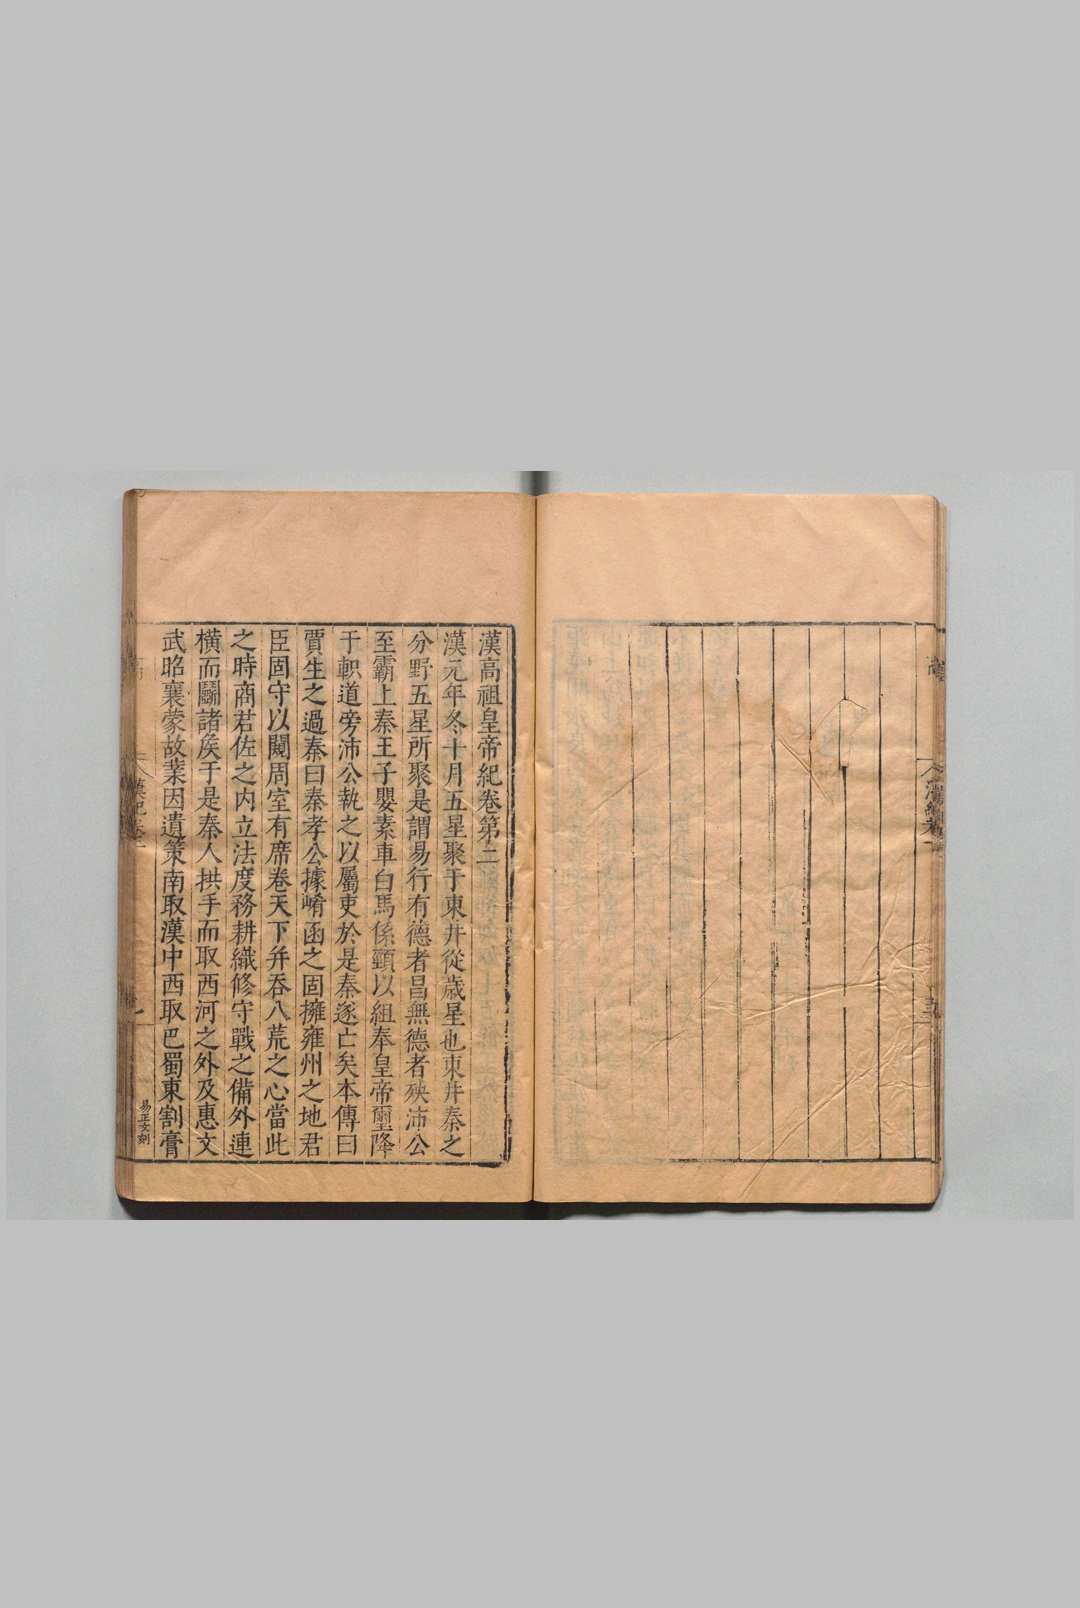 漢高祖皇帝紀卷第二
漢元年冬十月五星聚于東井從歲星也東井秦之
分野五星所聚是謂易行有德者昌無德者殃沛公
至霸上秦王子嬰素車白馬係頸以組奉皇帝璽降
于軹道旁沛公執之以屬吏於是秦遂亡矣本傳曰
賈生之過秦曰秦孝公據崤函之固擁雍州之地君
臣固守以闚周室有席卷天下并吞八荒之心當此
之時商君佐之內立法度務耕織修守戰之備外連
橫而鬬諸侯于是秦人拱手而取西河之外及惠文
武昭襄蒙故業因遺策南取漢中西取巴蜀東割膏
漢紀卷二
易正文刻